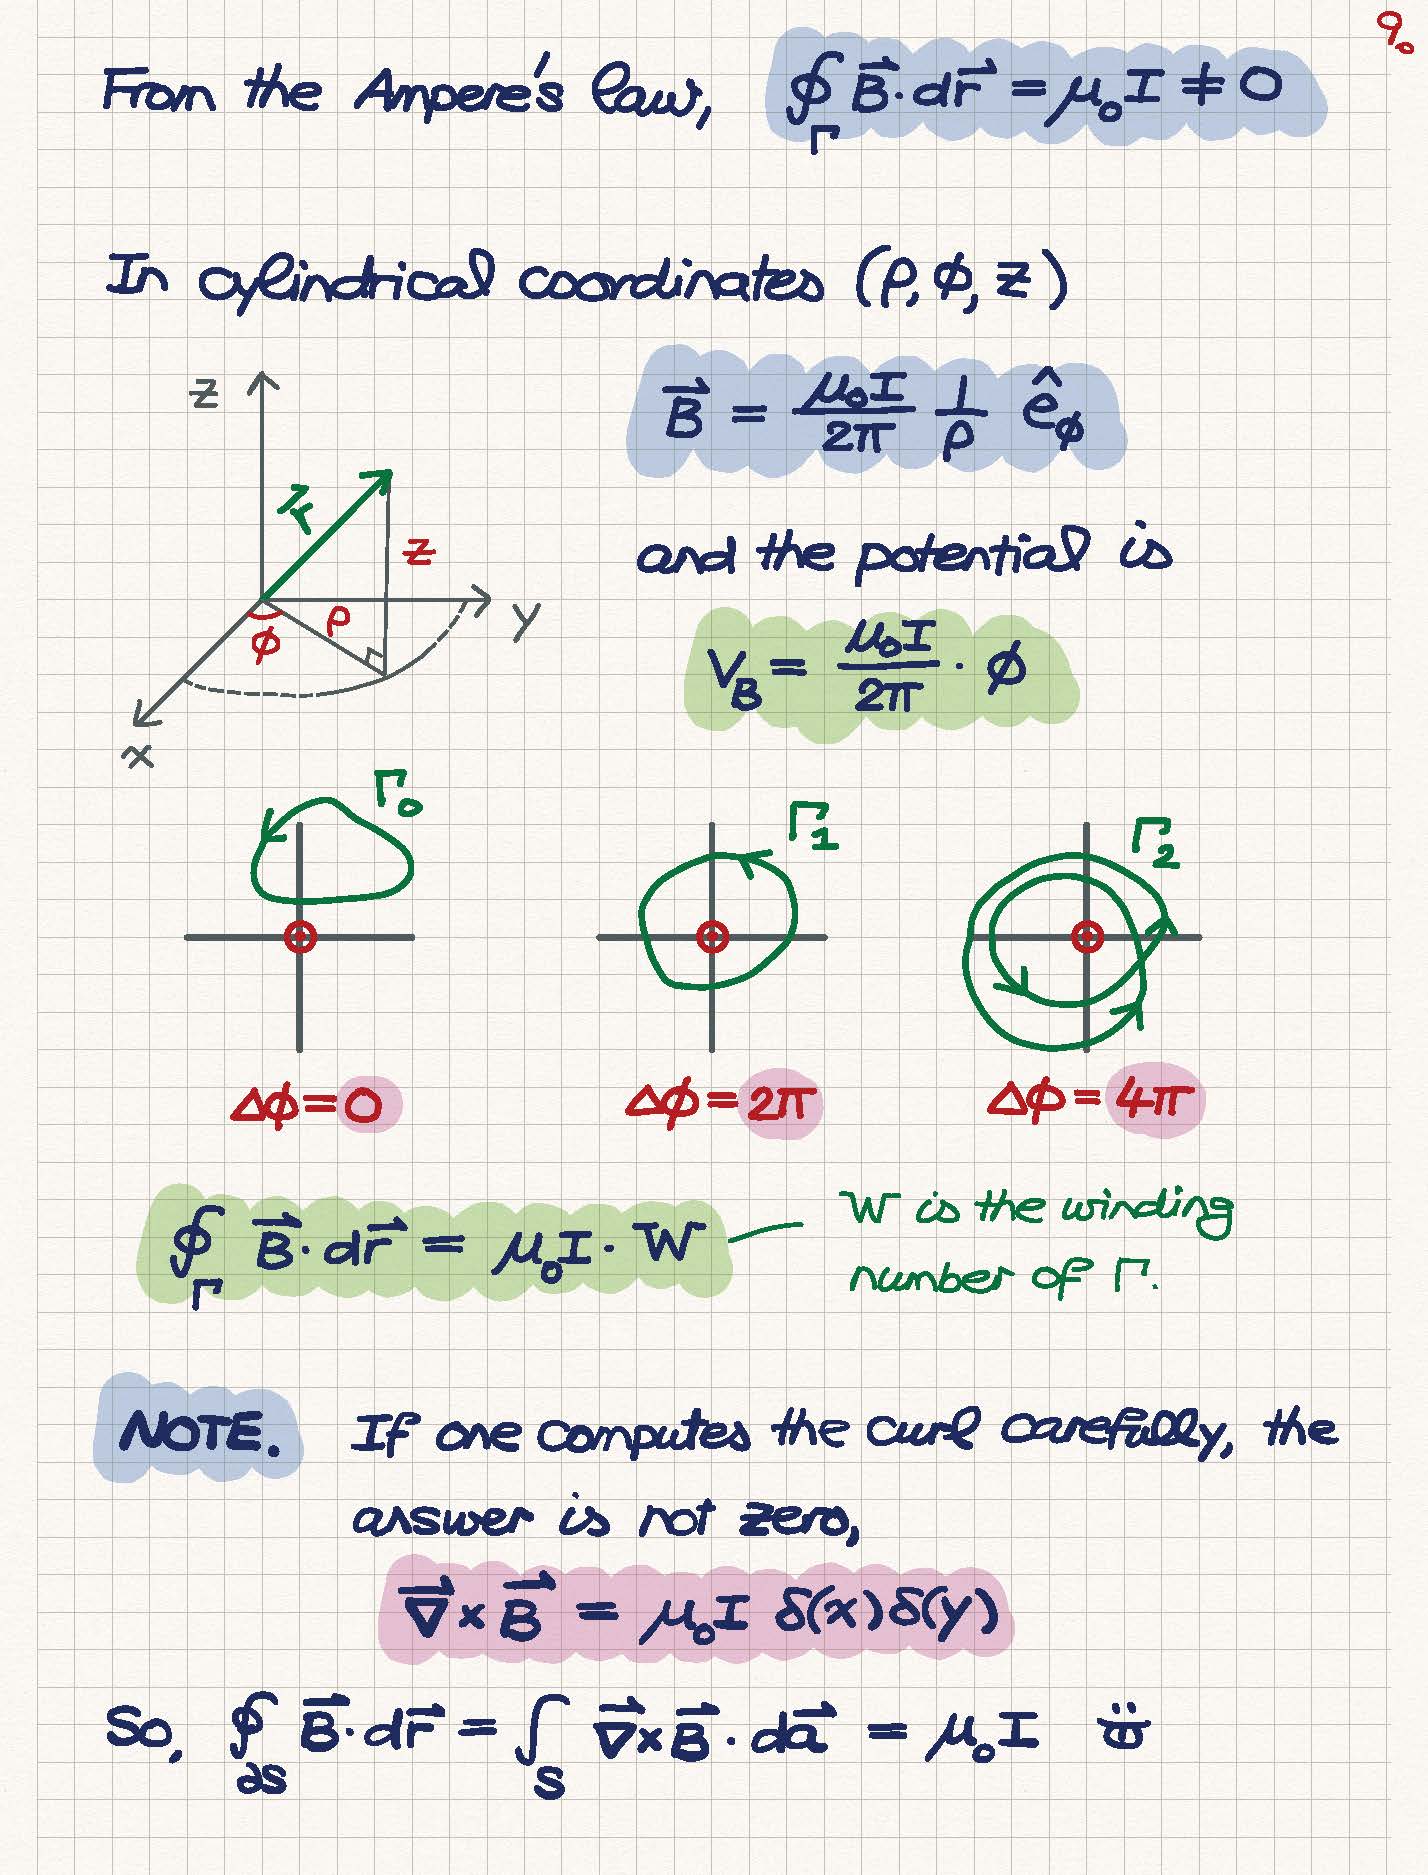 9.
From the Ampere's law, ∮_Γ B⃗·dr⃗ = μ₀I ≠ 0
In cylindrical coordinates (ρ, φ, z)
z
B⃗ = μ₀I/2π 1/ρ ê_φ
r⃗
z
and the potential is
φ ρ y
V_B = μ₀I/2π · φ
x
Γ₀ Γ₁ Γ₂
Δφ = 0 Δφ = 2π Δφ = 4π
∮_Γ B⃗·dr⃗ = μ₀I · W
W is the winding
number of Γ.
NOTE. If one computes the curl carefully, the
answer is not zero,
∇⃗ × B⃗ = μ₀I δ(x)δ(y)
So, ∮_∂S B⃗·dr⃗ = ∫_S ∇⃗×B⃗ · da⃗ = μ₀I